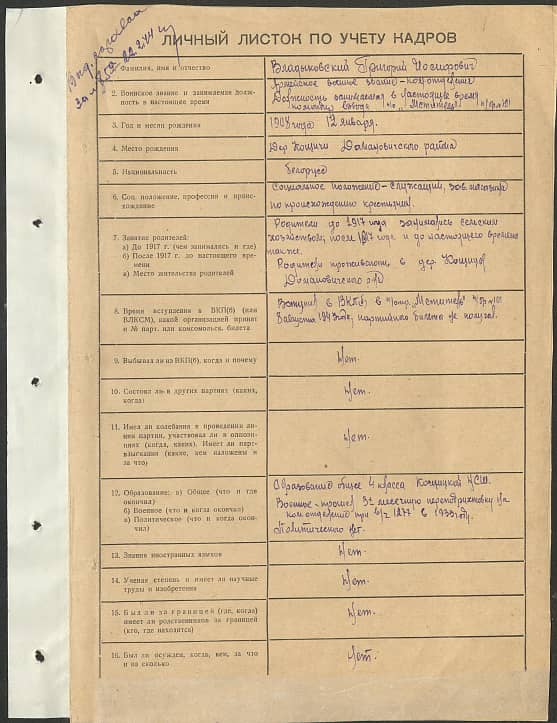 22.2.44
ЛИЧНЫЙ ЛИСТОК ПО УЧЕТУ КАДРОВ
Фамилия, имя и отчество
Владыковский Григорий Иосифович
2. Воинское звание и занимаемая долж-
ность в настоящее время
воинское звание - комотделения
Должность занимаемая в настоящее время
командир взвода "Мститель"
3. Год и месяц рождения
1908 года 12 января.
4. Место рождения
Дер Кощичи Домановичского района
5. Национальность
белорус
6. Соц. положение, профессия и проис-
хождение
Социальное положение - служащий, зав магазина
по происхождению крестьянин.
7. Занятие родителей:
а) До 1917 г. (чем занимались и где)
б) После 1917 г. до настоящего вре-
мени
в) Место жительства родителей
Родители до 1917 года занимались сельским
хозяйством, после 1917 года и до настоящего времени
также.
Родители проживают в дер. Кощичи
Домановичского
8. Время вступления в ВКП(б) (или
ВЛКСМ), какой организацией принят
и № парт. или комсомольск. билета
Вступил в ВКП(б) в "Мститель"
августа 1943 года, партийного билета не получал.
9. Выбывал ли из ВКП(б), когда и почему
Нет.
10. Состоял ли в других партиях (каких,
когда)
Нет.
11. Имел ли колебания в проведении ли-
нии партии, участвовал ли в оппози-
циях (когда, каких). Имеет ли парт-
взыскания (какие, кем наложены и
за что)
Нет.
12. Образование: а) Общее (что и где
окончил)
б) Военное (что и когда окончил)
в) Политическое (что и когда окон-
чил)
Образование общее 4 класса Кощичской НСШ.
Военное - прошел 3х месячную переподготовку на
комотделения при в/ч 1277 в 1933 году.
Политического нет.
13. Знание иностранных языков
Нет.
14. Ученая степень и имеет ли научные
труды и изобретения
Нет.
15. Был ли за границей (где, когда)
имеет ли родственников за границей
(кто, где находятся)
Нет.
16. Был ли осужден, когда, кем, за что
и на сколько
Нет.